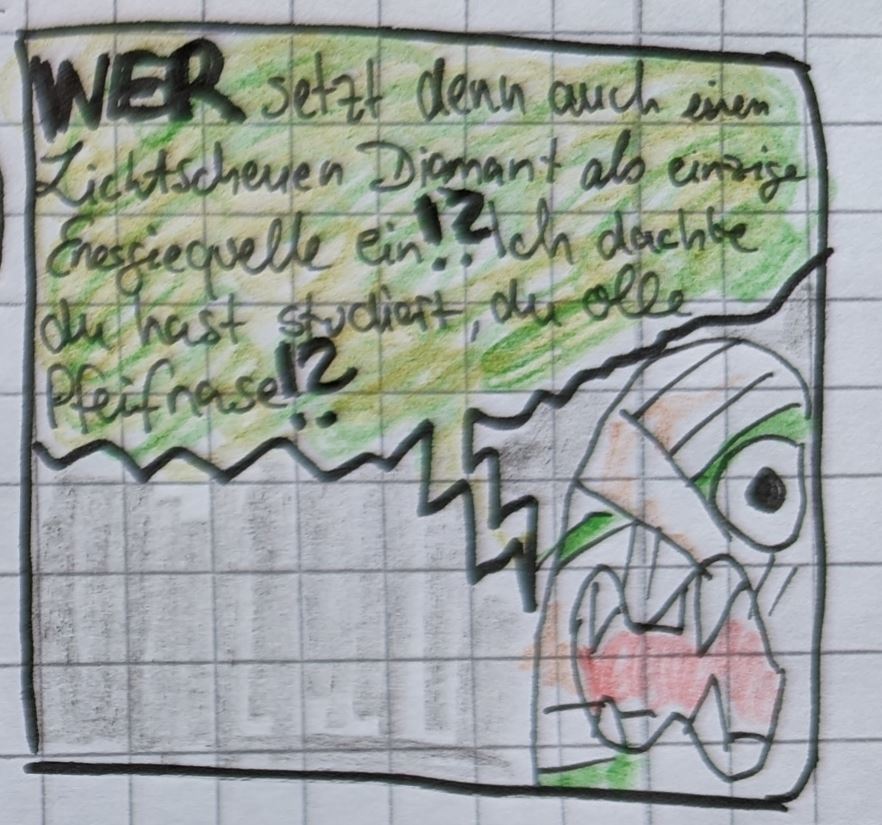 WER setzt denn auch einen
Lichtscheuen Diamant als einzige
Energiequelle ein!? Ich dachte
du hast studiert, du olle
Pfeifnase!?